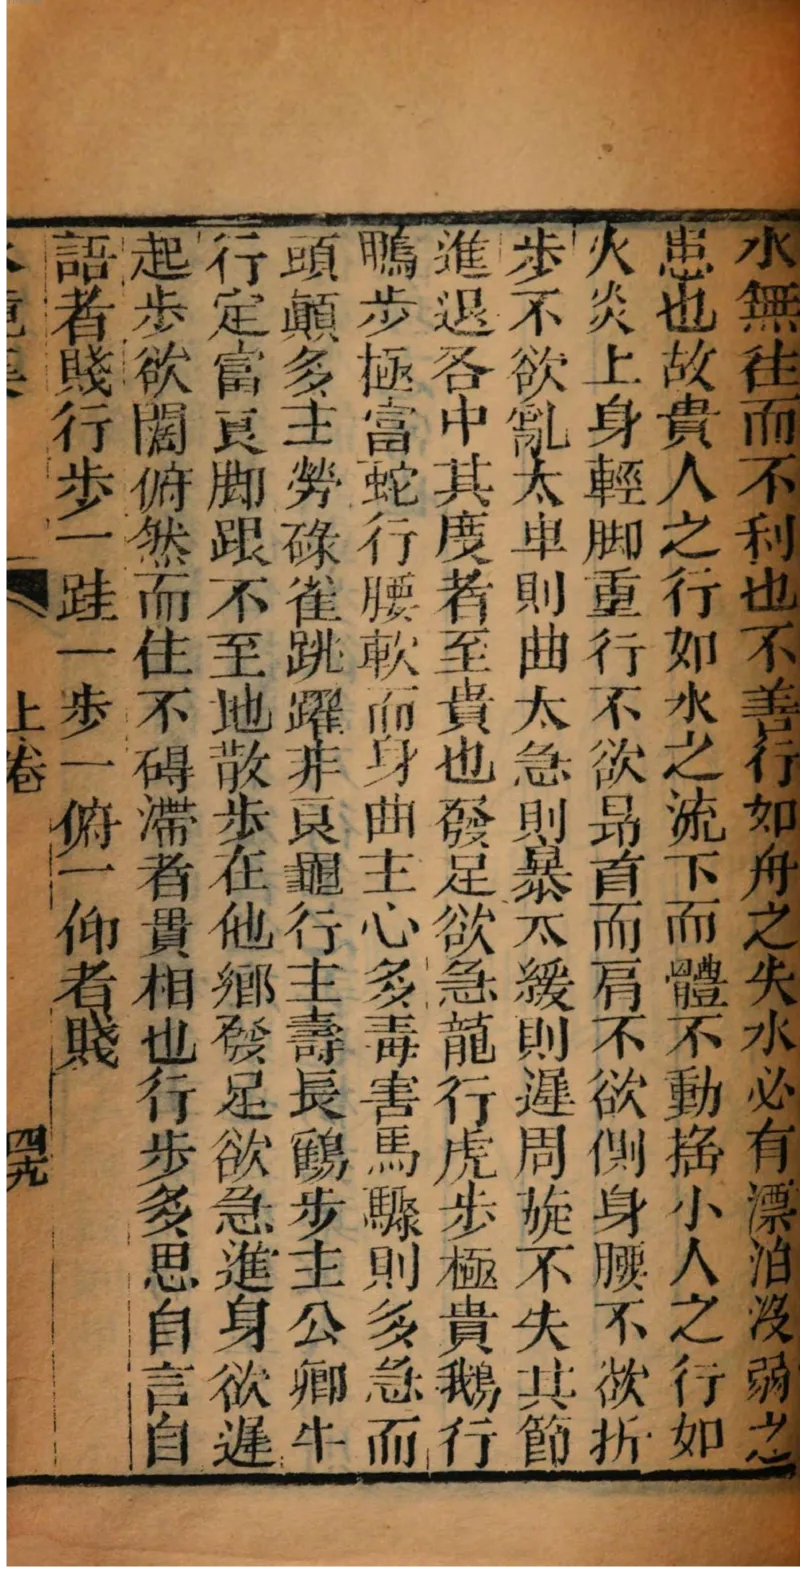 水無往而不利也不善行如舟之失水必有漂泊没弱之
患也故貴人之行如水之流下而體不動搖小人之行如
火炎上身輕脚重行不欲昂首而肩不欲側身腰不欲折
步不欲亂太卑則曲太急則暴太緩則遲周旋不失其節
進退各中其度者至貴也發足欲急龍行虎步極貴鵝行
鴨步極富蛇行腰軟而身曲主心多毒害馬驟則多急而
頭顛多主勞碌雀跳躍非良龜行主壽長鶴步主公卿牛
行定富良脚跟不至地散步在他鄉發足欲急進身欲遲
起步欲闊俯然而住不碍滯者貴相也行步多思自言自
語者賤行步一跬一步一俯一仰者賤
上卷
四九